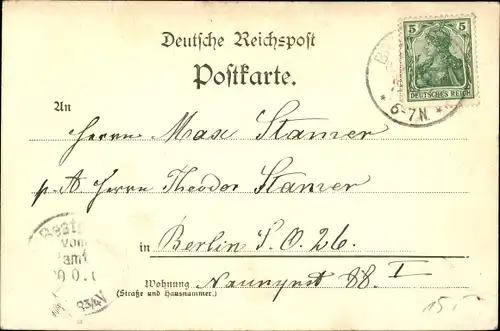 Deutsche Reichspost
Postkarte.
5 5
DEUTSCHES REICH
* 6-7N. *
An
Herrn Max Stamer
p. A Herrn Theodor Stamer
in Berlin S.O. 26.
Wohnung Naunynst 88. I
(Straße und Hausnummer.)
Beste
vom
amt
15.